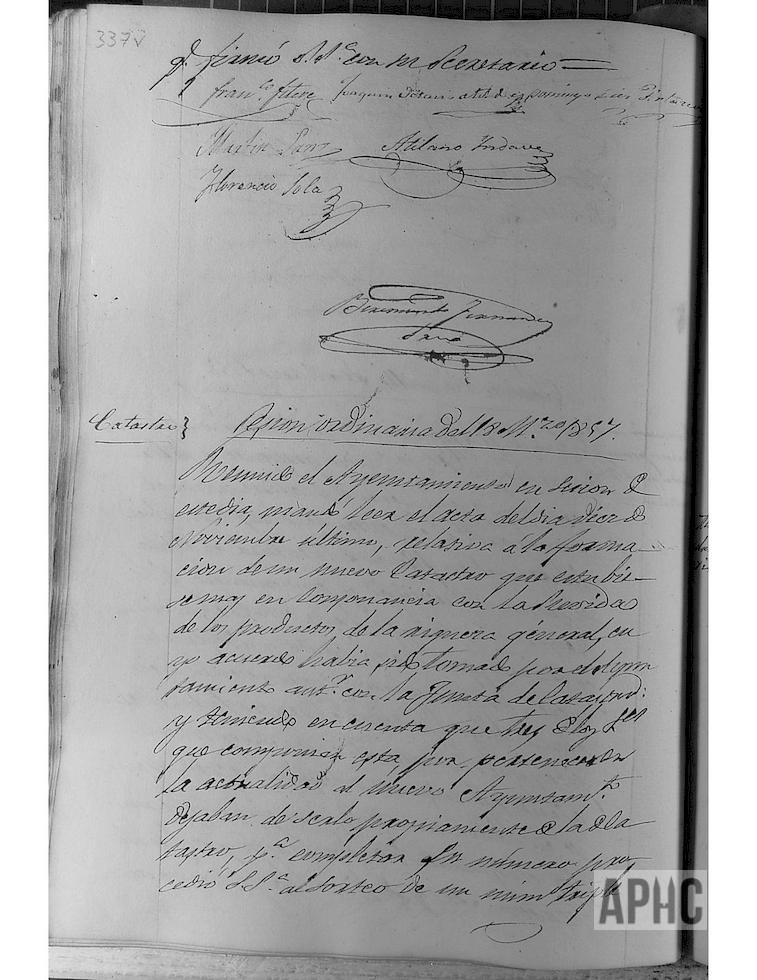 APHC
337v
q.e firmó S. S.a con mi Secretario
Fran.co Joaquin
Martin Sanz Atilano
Florencio Sola
Beremundo Fernandez
Catastro} Sesion ordinaria del 18 M.rzo 1857.
Reunido el Ayuntamiento en sesion de
este dia, mandó leer el acta del dia diez de
Noviembre ultimo, relativa á la forma-
cion de un nuevo Catastro que estubie-
se mas en consonancia con la
de los productos de la riqueza general, cu
yo acuerdo habia sido tomado por el Ayun
tamiento ant.or con la Junta de Catastro;
y teniendo en cuenta que tres de los S.res
que componian esta, por pertenecer en
la actualidad al nuevo Ayuntam.to
dejaban de serlo propiamente de la de Ca
tastro, p.a completar su número pro
cedió S. S.a al sorteo de un núm.o triple
APHC